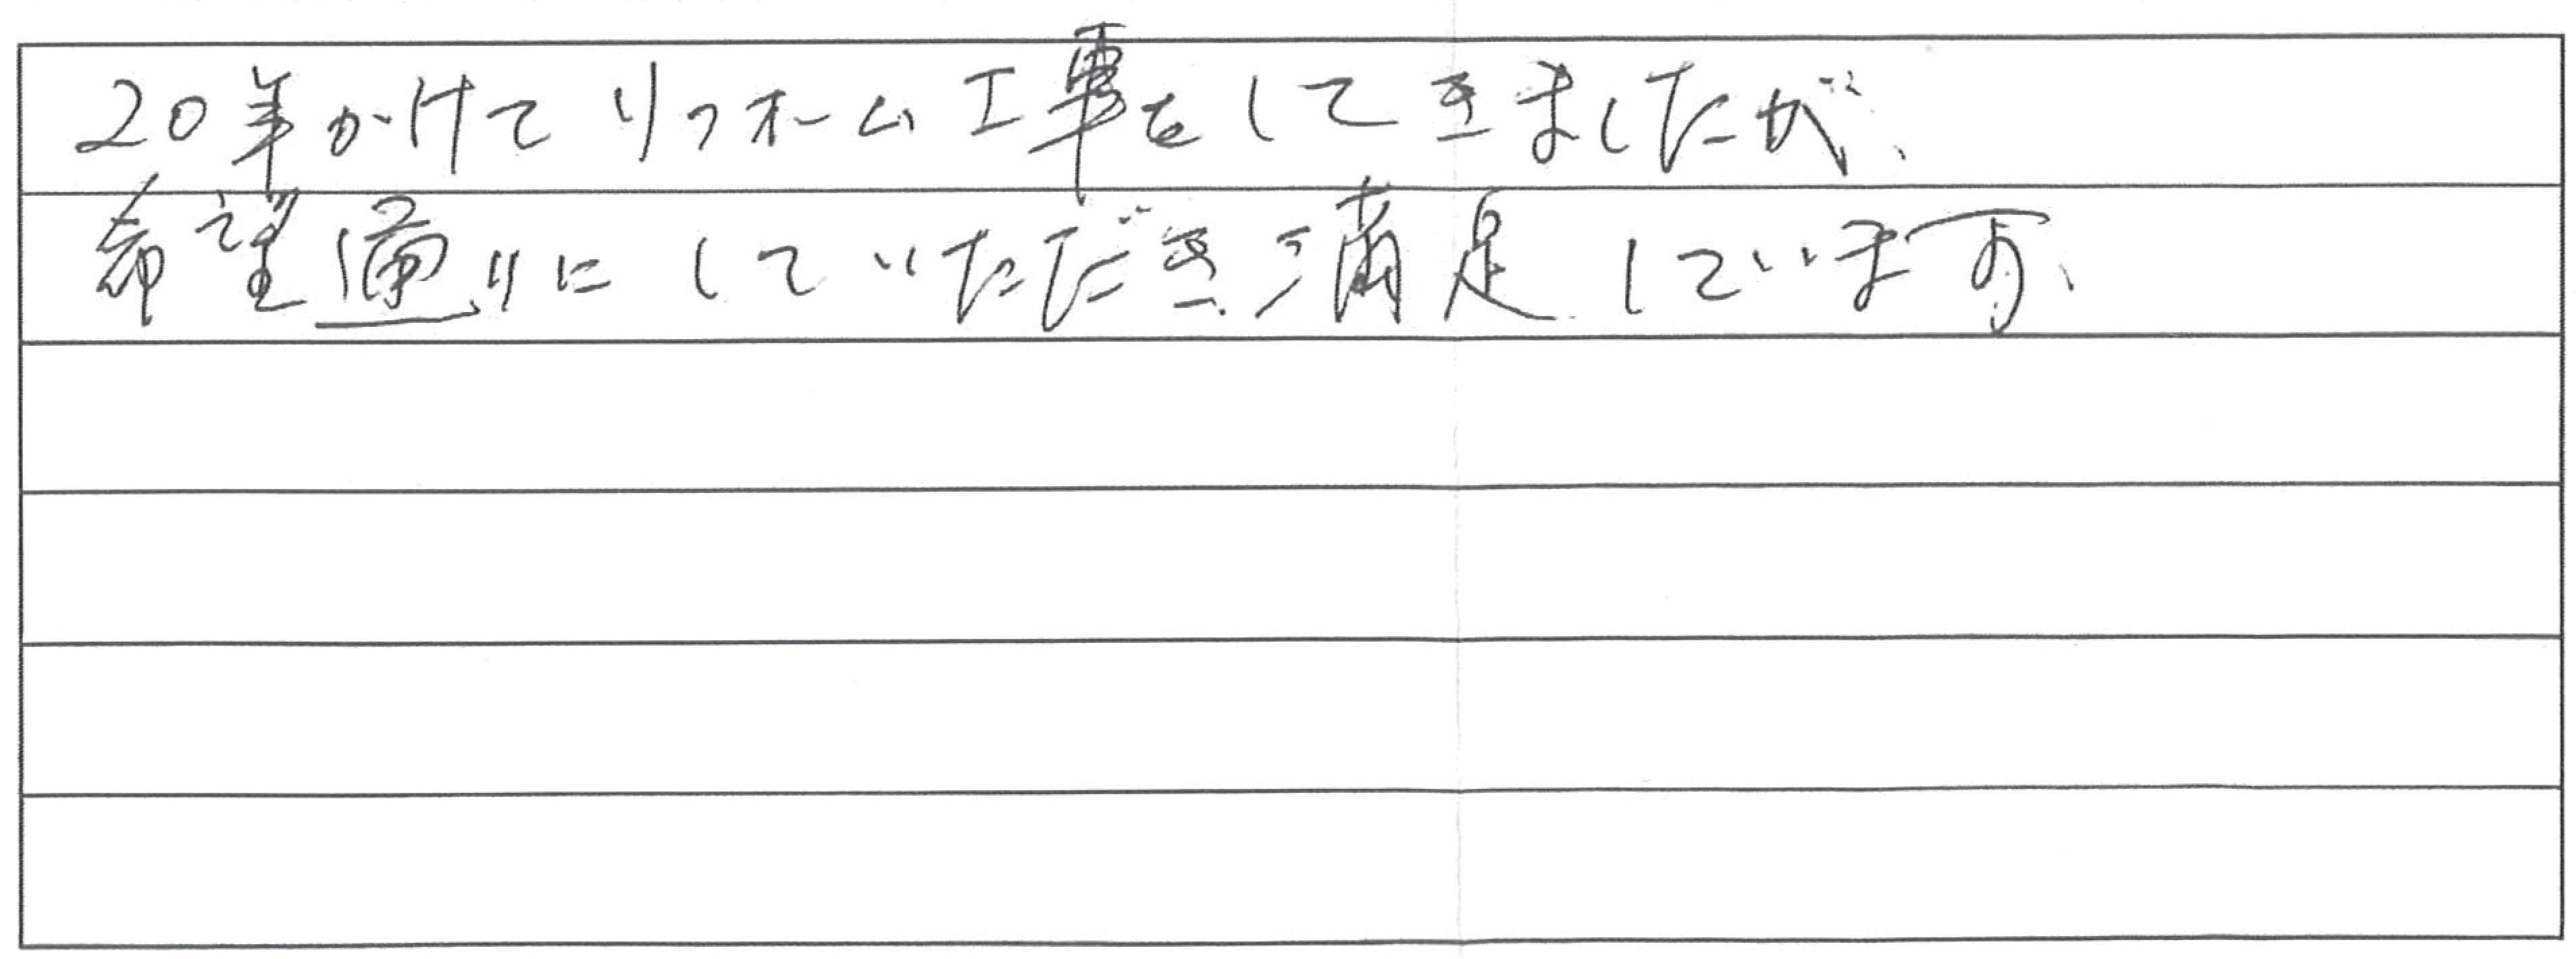 20年かけてリフォーム工事をしてきましたが、
希望通りにしていただき満足しています、